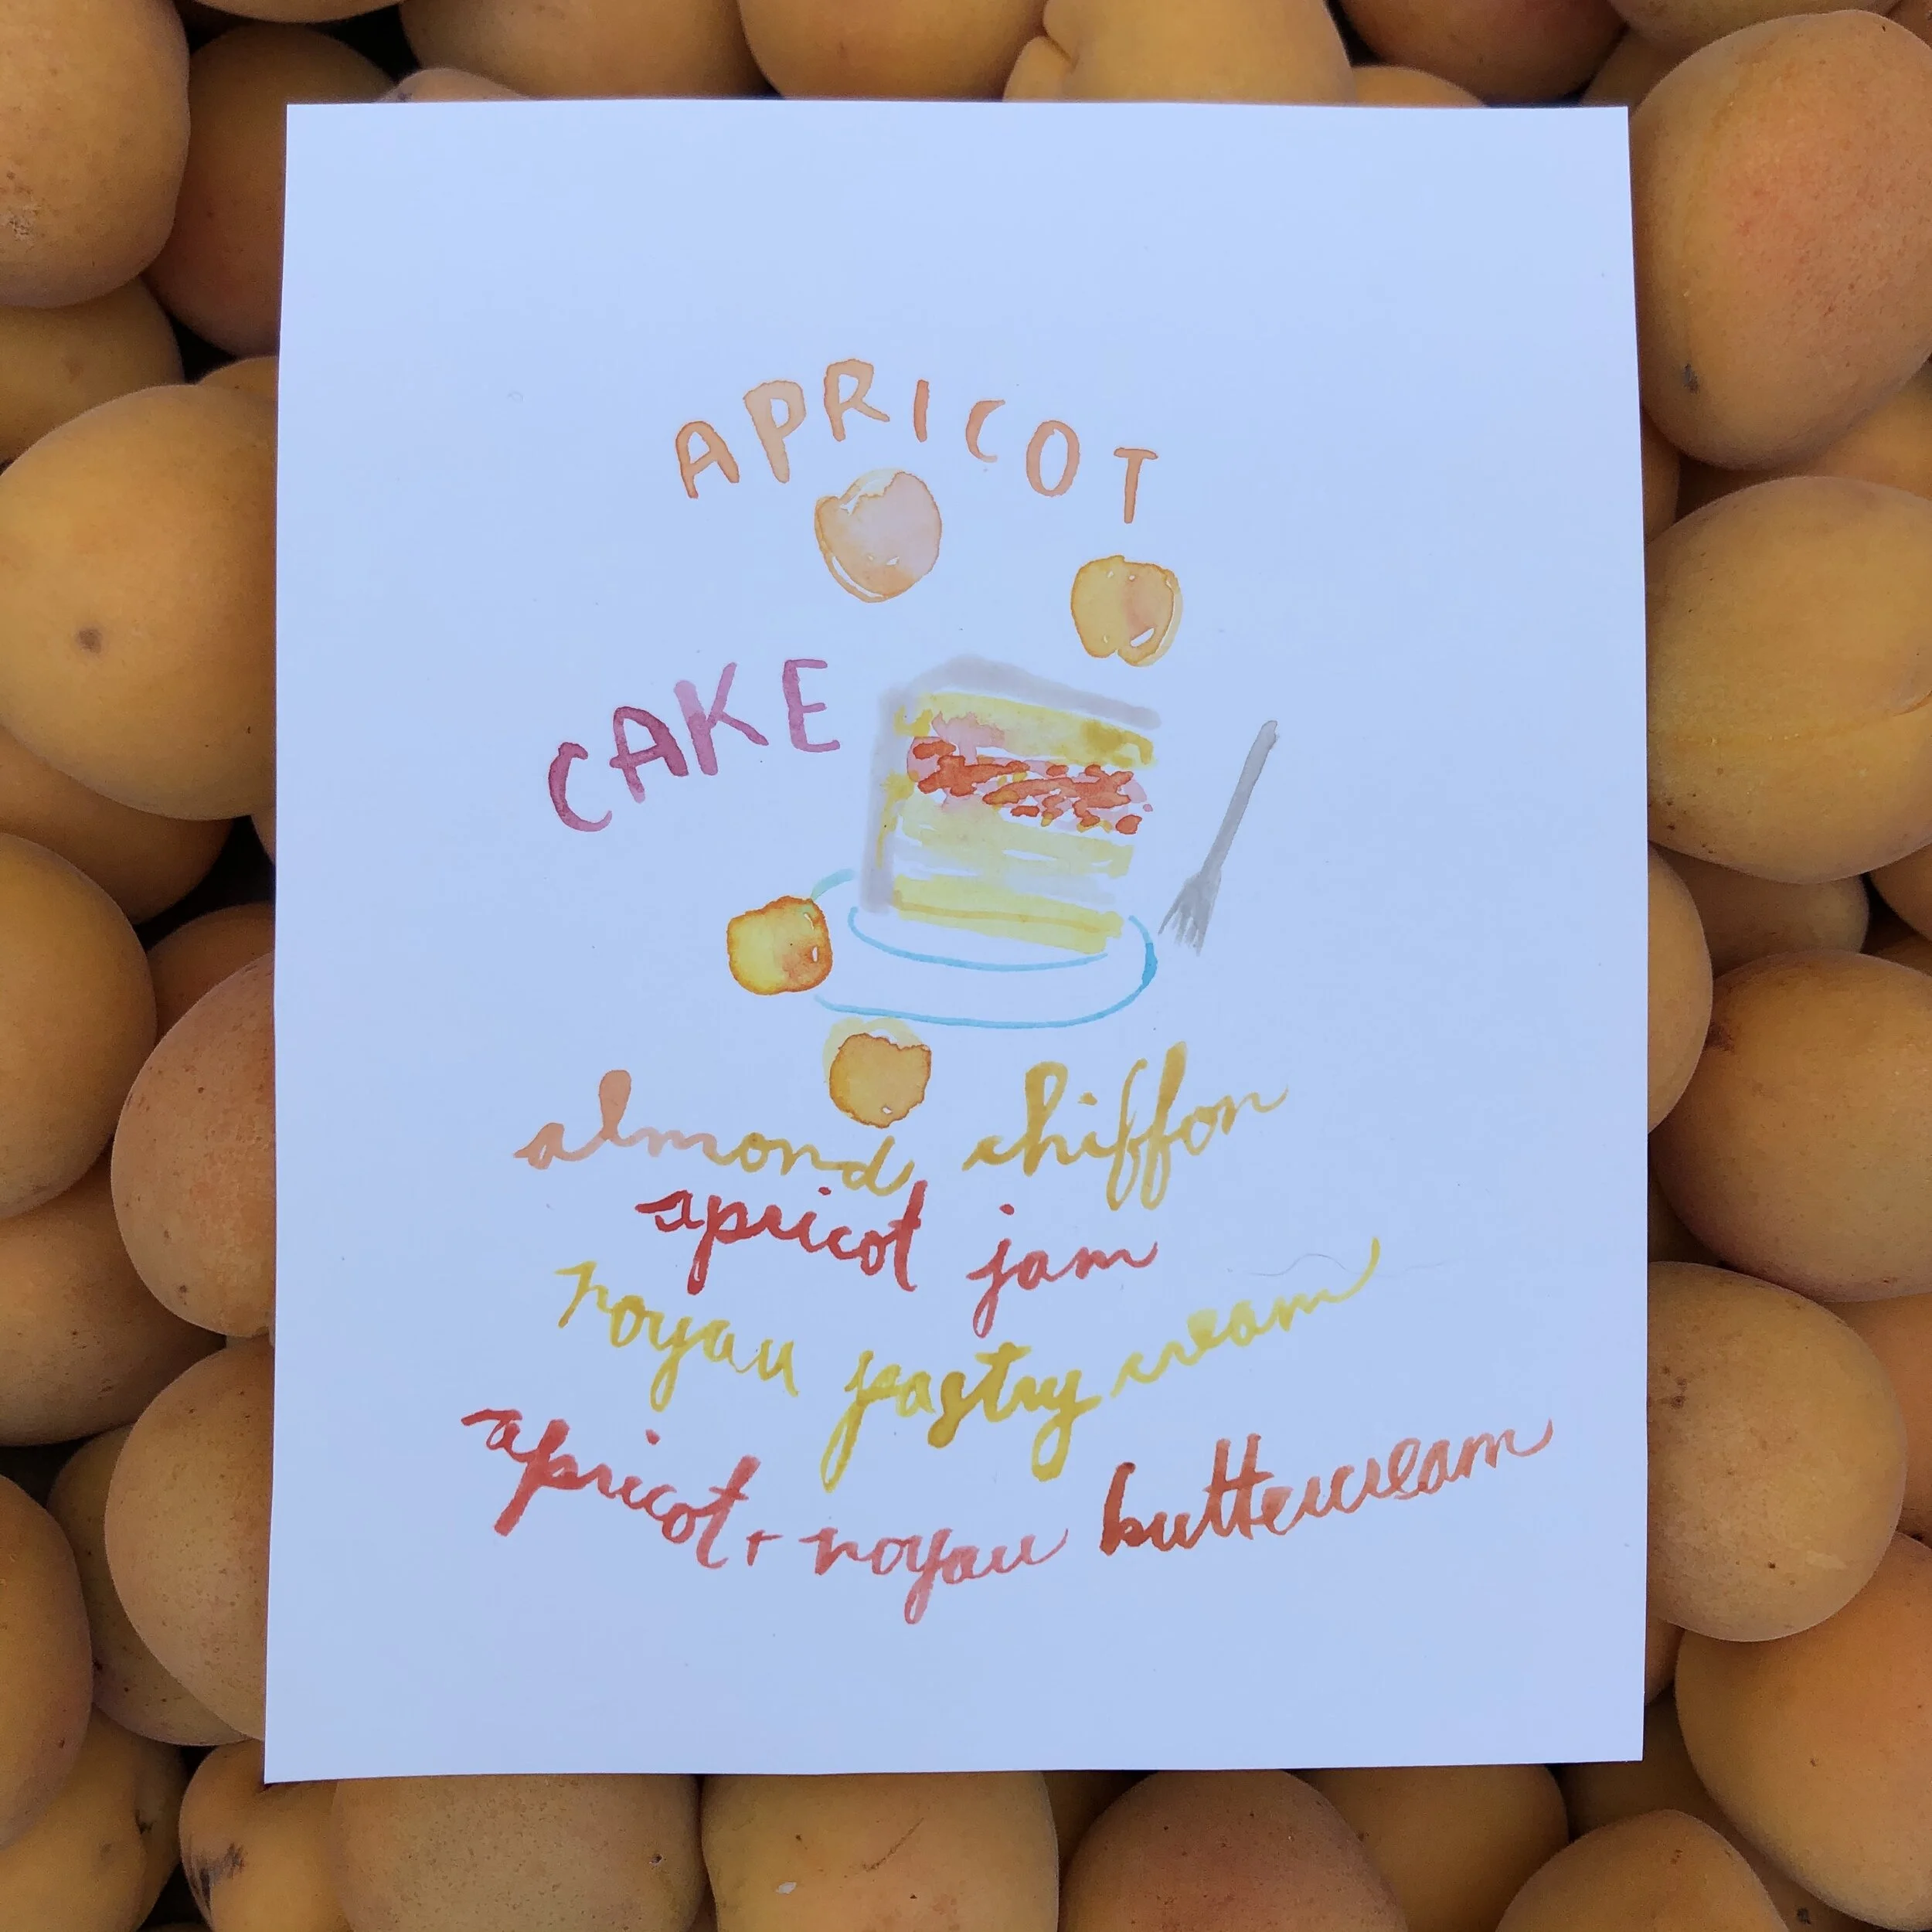 APRICOT
CAKE
almond chiffon
apricot jam
noyau pastry cream
apricot + noyau buttercream